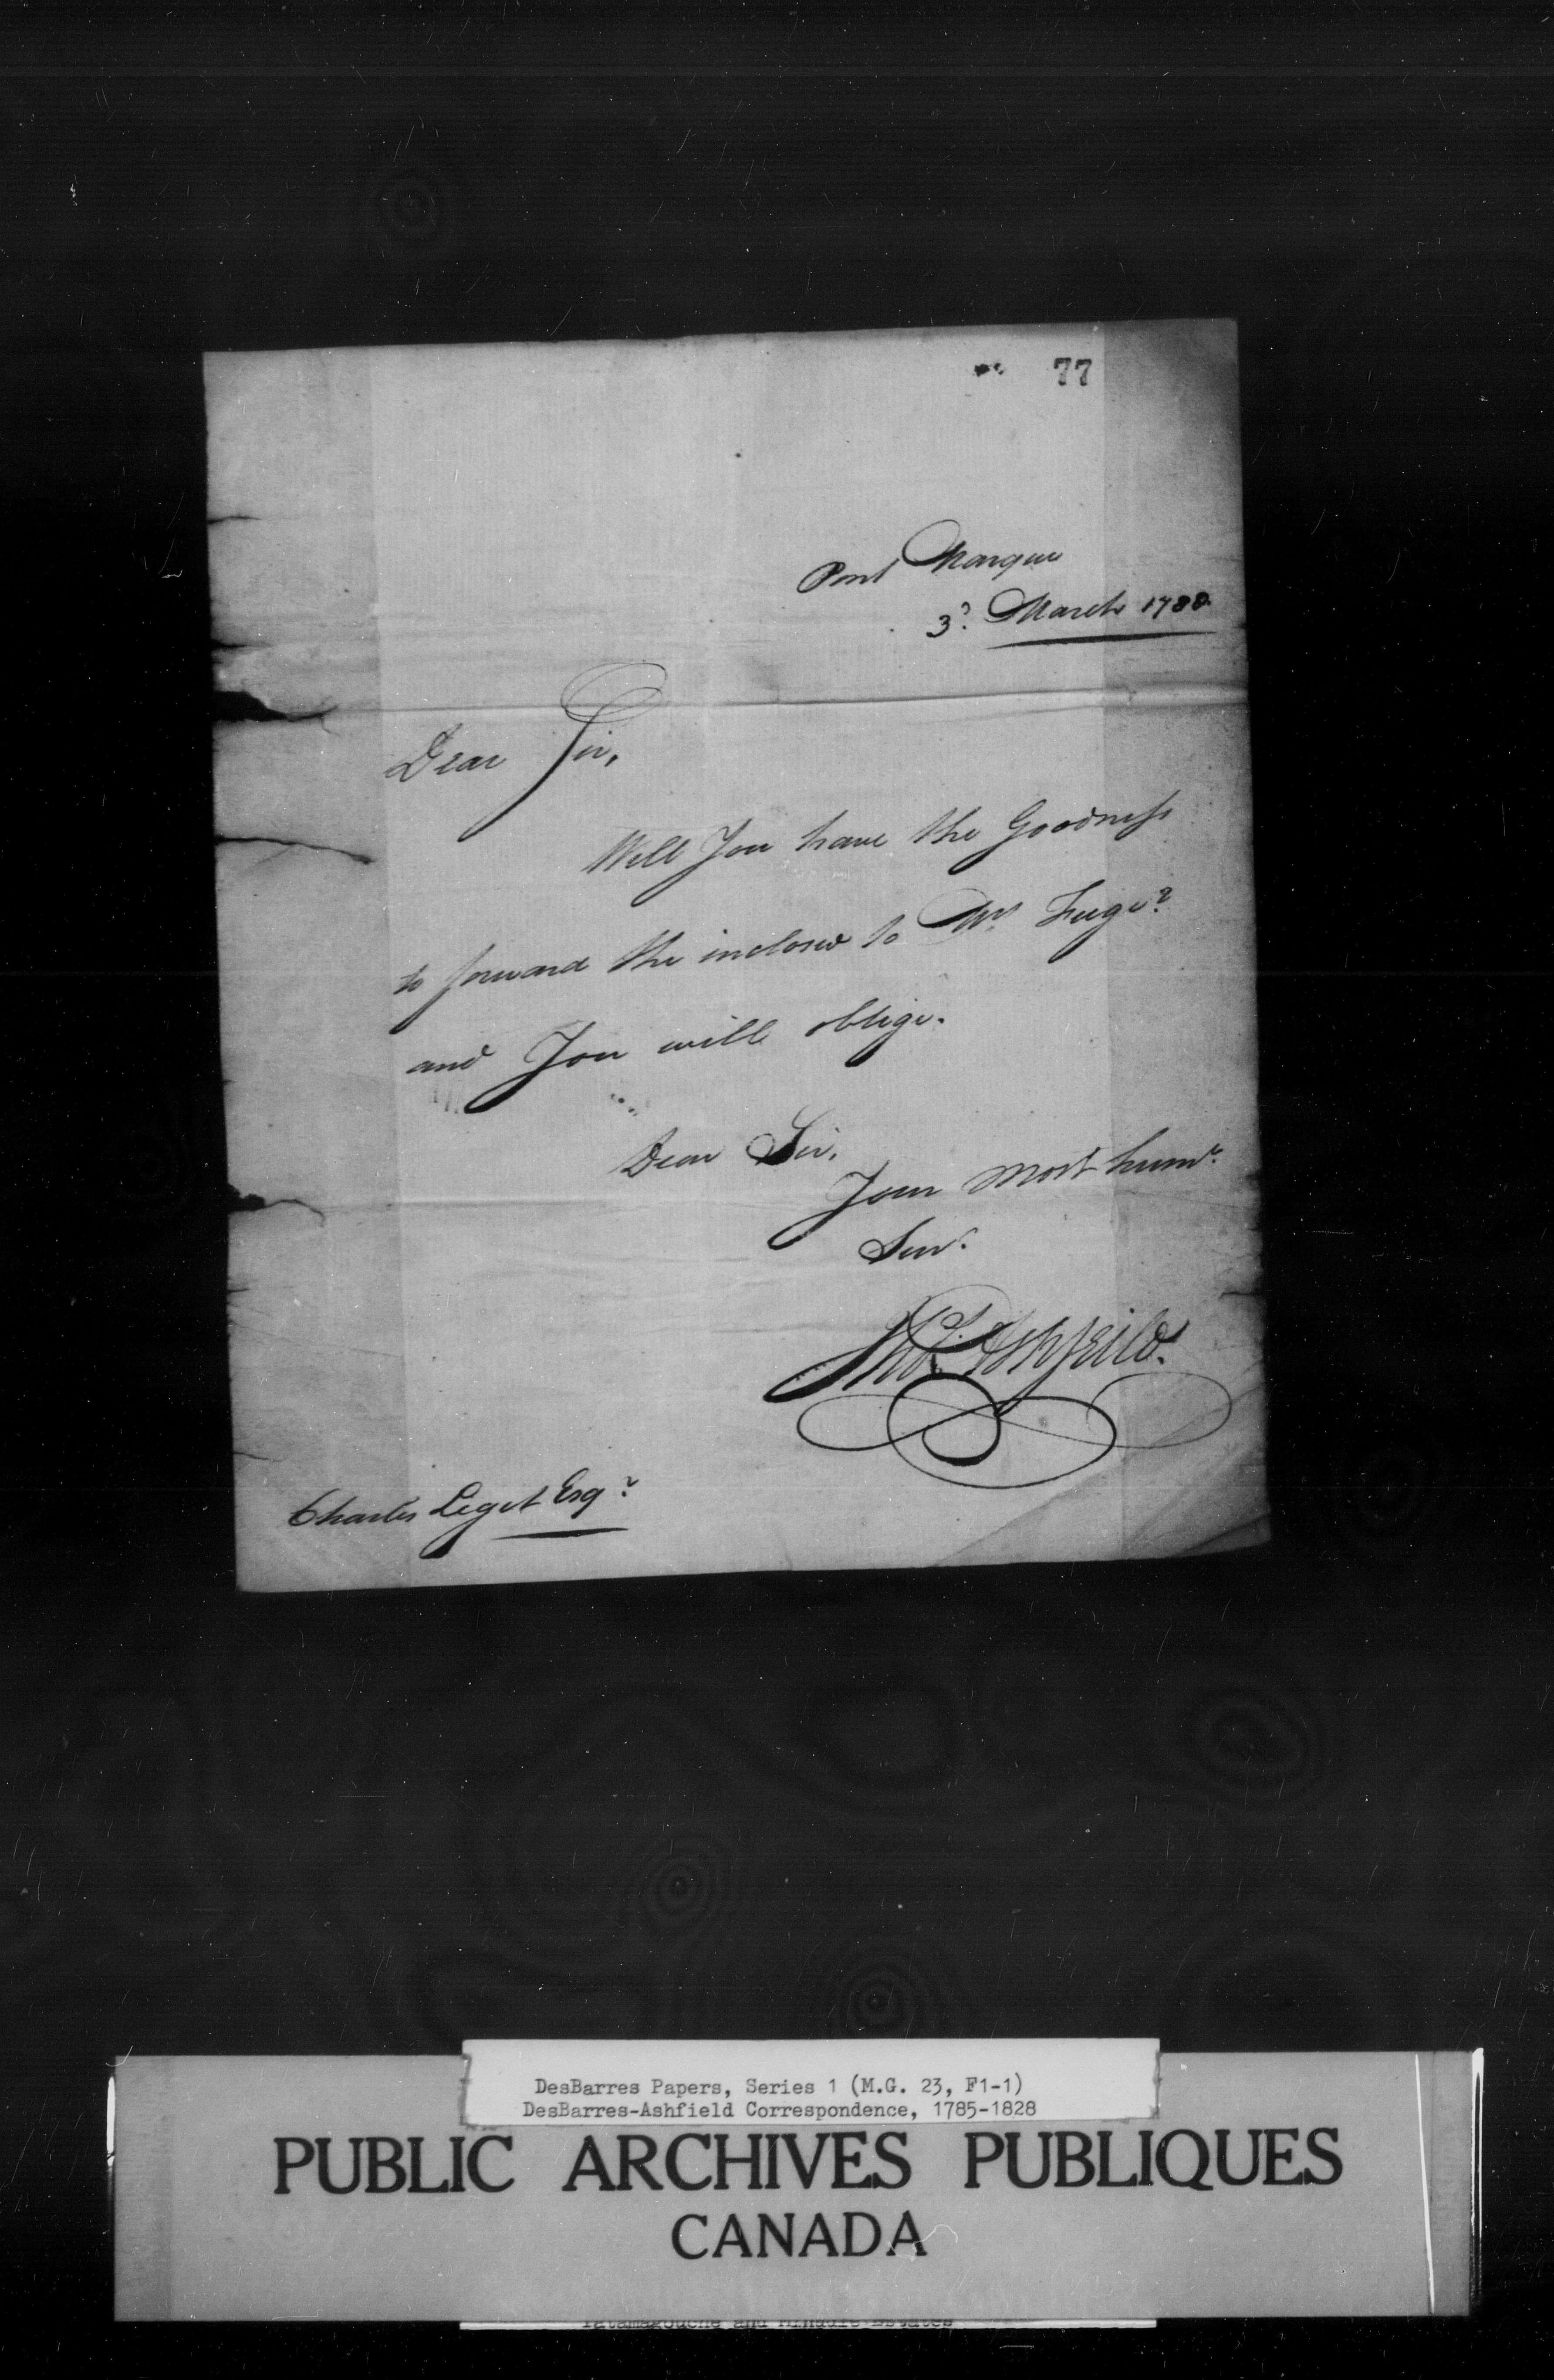 77
Point Marque
3d. March 1788
Dear Sir,
Will You have the Goodness
to forward the inclosed to Mr.
and You will oblige.
Dear Sir,
Your most hum.
Serv.
Thos. Ashfeild.
Charles Leget Esqr
DesBarres Papers, Series 1 (M.G. 23, F1-1)
DesBarres-Ashfield Correspondence, 1785-1828
PUBLIC ARCHIVES PUBLIQUES
CANADA
Tatamagouche and Minudie Estates